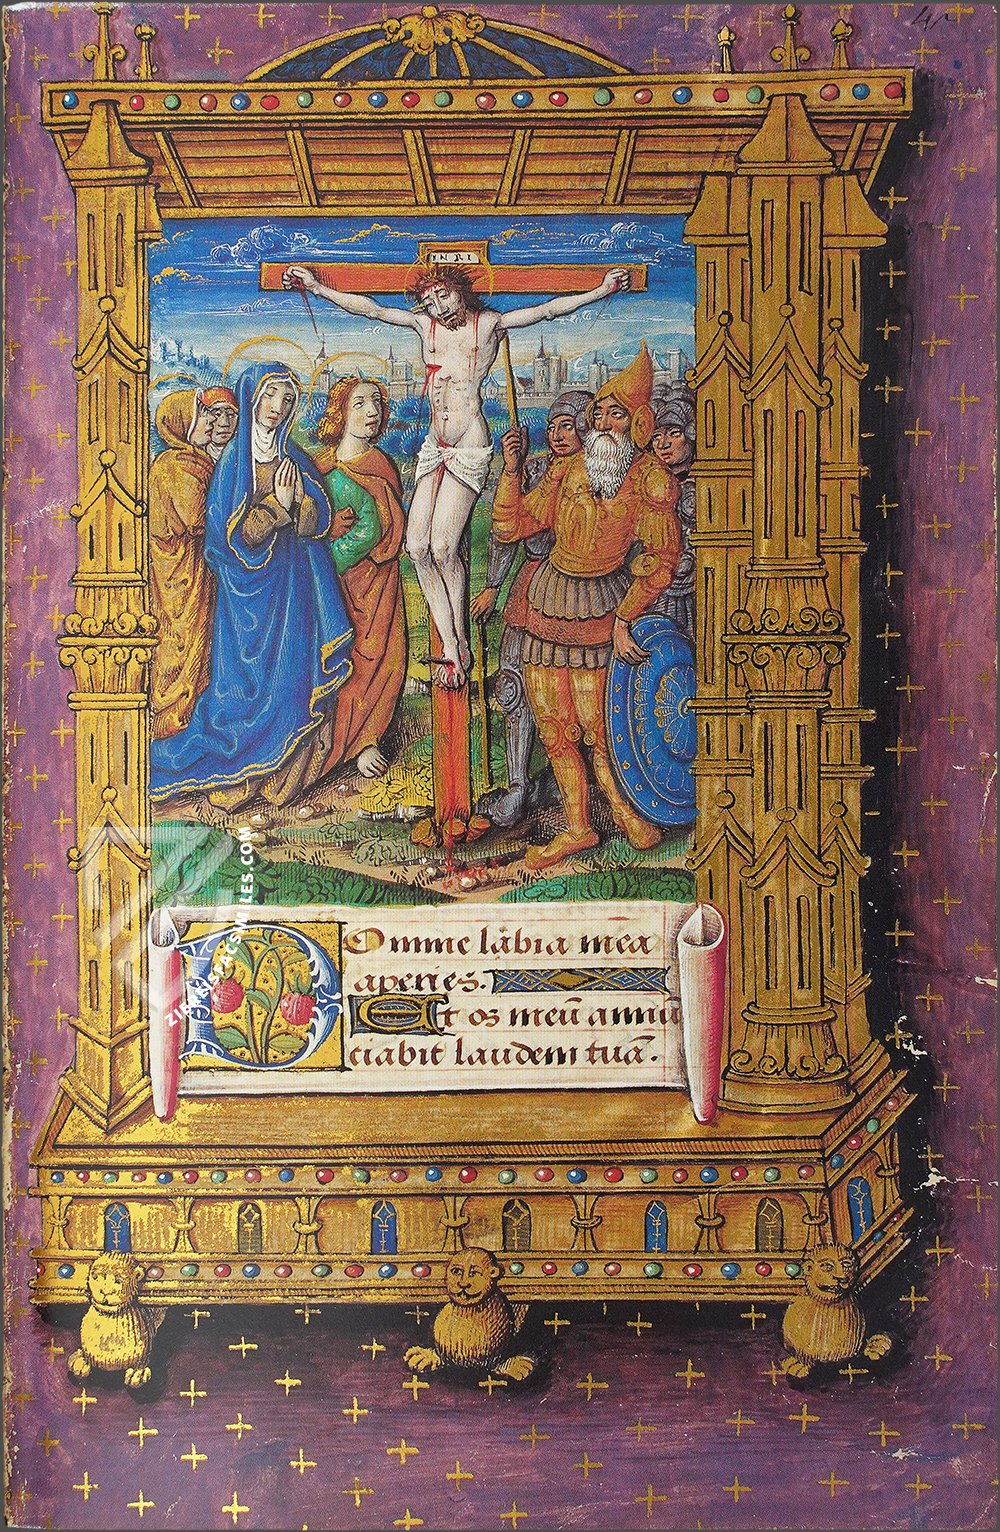 INRI
Domine labia mea
aperies.
Et os meū annū
ciabit laudem tuā.
ZIEREISFACSIMILES.COM